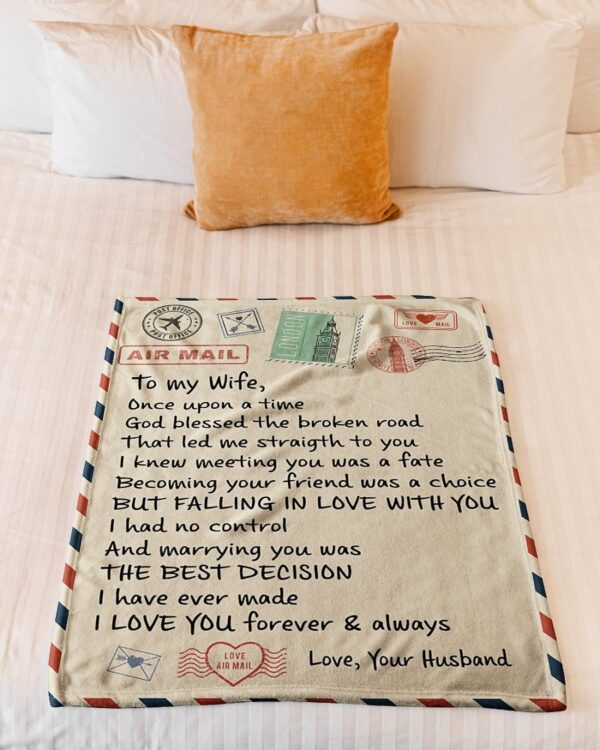 POST OFFICE
POST OFFICE
LONDON
LOVE MAIL
AIR MAIL
To my Wife,
Once upon a time
God blessed the broken road
That led me straigth to you
I knew meeting you was a fate
Becoming your friend was a choice
BUT FALLING IN LOVE WITH YOU
I had no control
And marrying you was
THE BEST DECISION
I have ever made
I LOVE YOU forever & always
LOVE
AIR MAIL
Love, Your Husband